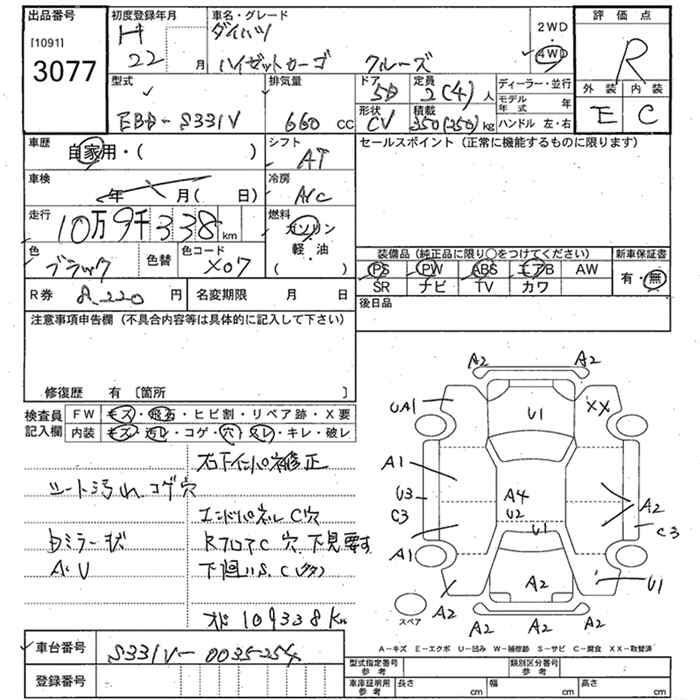 出品番号
[1091]
3077
初度登録年月
H 22 月
車名・グレード
ダイハツ
ハイゼットカーゴ クルーズ
2WD
4WD
評価点
R
外装 内装
E C
型式
EBD-S331V
排気量
660 cc
ドア
5D
定員
2(4)人
形状
CV
積載
350(250)kg
ディーラー・並行
モデル年式 年
ハンドル 左・右
車歴
自家用・( )
シフト
AT
セールスポイント(正常に機能するものに限ります)
車検
年 月( 日)
冷房
A/C
走行
10万9千338km
燃料
ガソリン
軽・油
( )
色
ブラック
色替
色コード
X07
装備品(純正品に限り○をつけてください)
新車保証書
PS PW ABS エアB AW
SR ナビ TV カワ
有・無
R券
8,220円
名変期限 月 日
後日品
注意事項申告欄(不具合内容等は具体的に記入して下さい)
修復歴 有〔箇所 〕
検査員記入欄
FW キズ・飛石・ヒビ割・リペア跡・X要
内装 キズ・汚れ・コゲ・穴・スレ・キレ・破レ
右下インパネ補修正
シート汚れ コゲ穴
エンドパネル C穴
RフロアC穴 下見要す
A・U
下廻りS、C(多数)
メーター 109338Km
車台番号
S331V-0035254
登録番号
A2 A2
UA1 U1 XX
A1
U3 A4 A2
C3 U2 C3
A1 U1
A2 A2 U1
A2 A2 A2
スペア
A−キズ E−エクボ U−凹み W−補修跡 S−サビ C−腐食 XX−取替済
型式指定番号参考
類別区分番号参考
車庫証明用参考
長さ cm 幅 cm 高さ cm